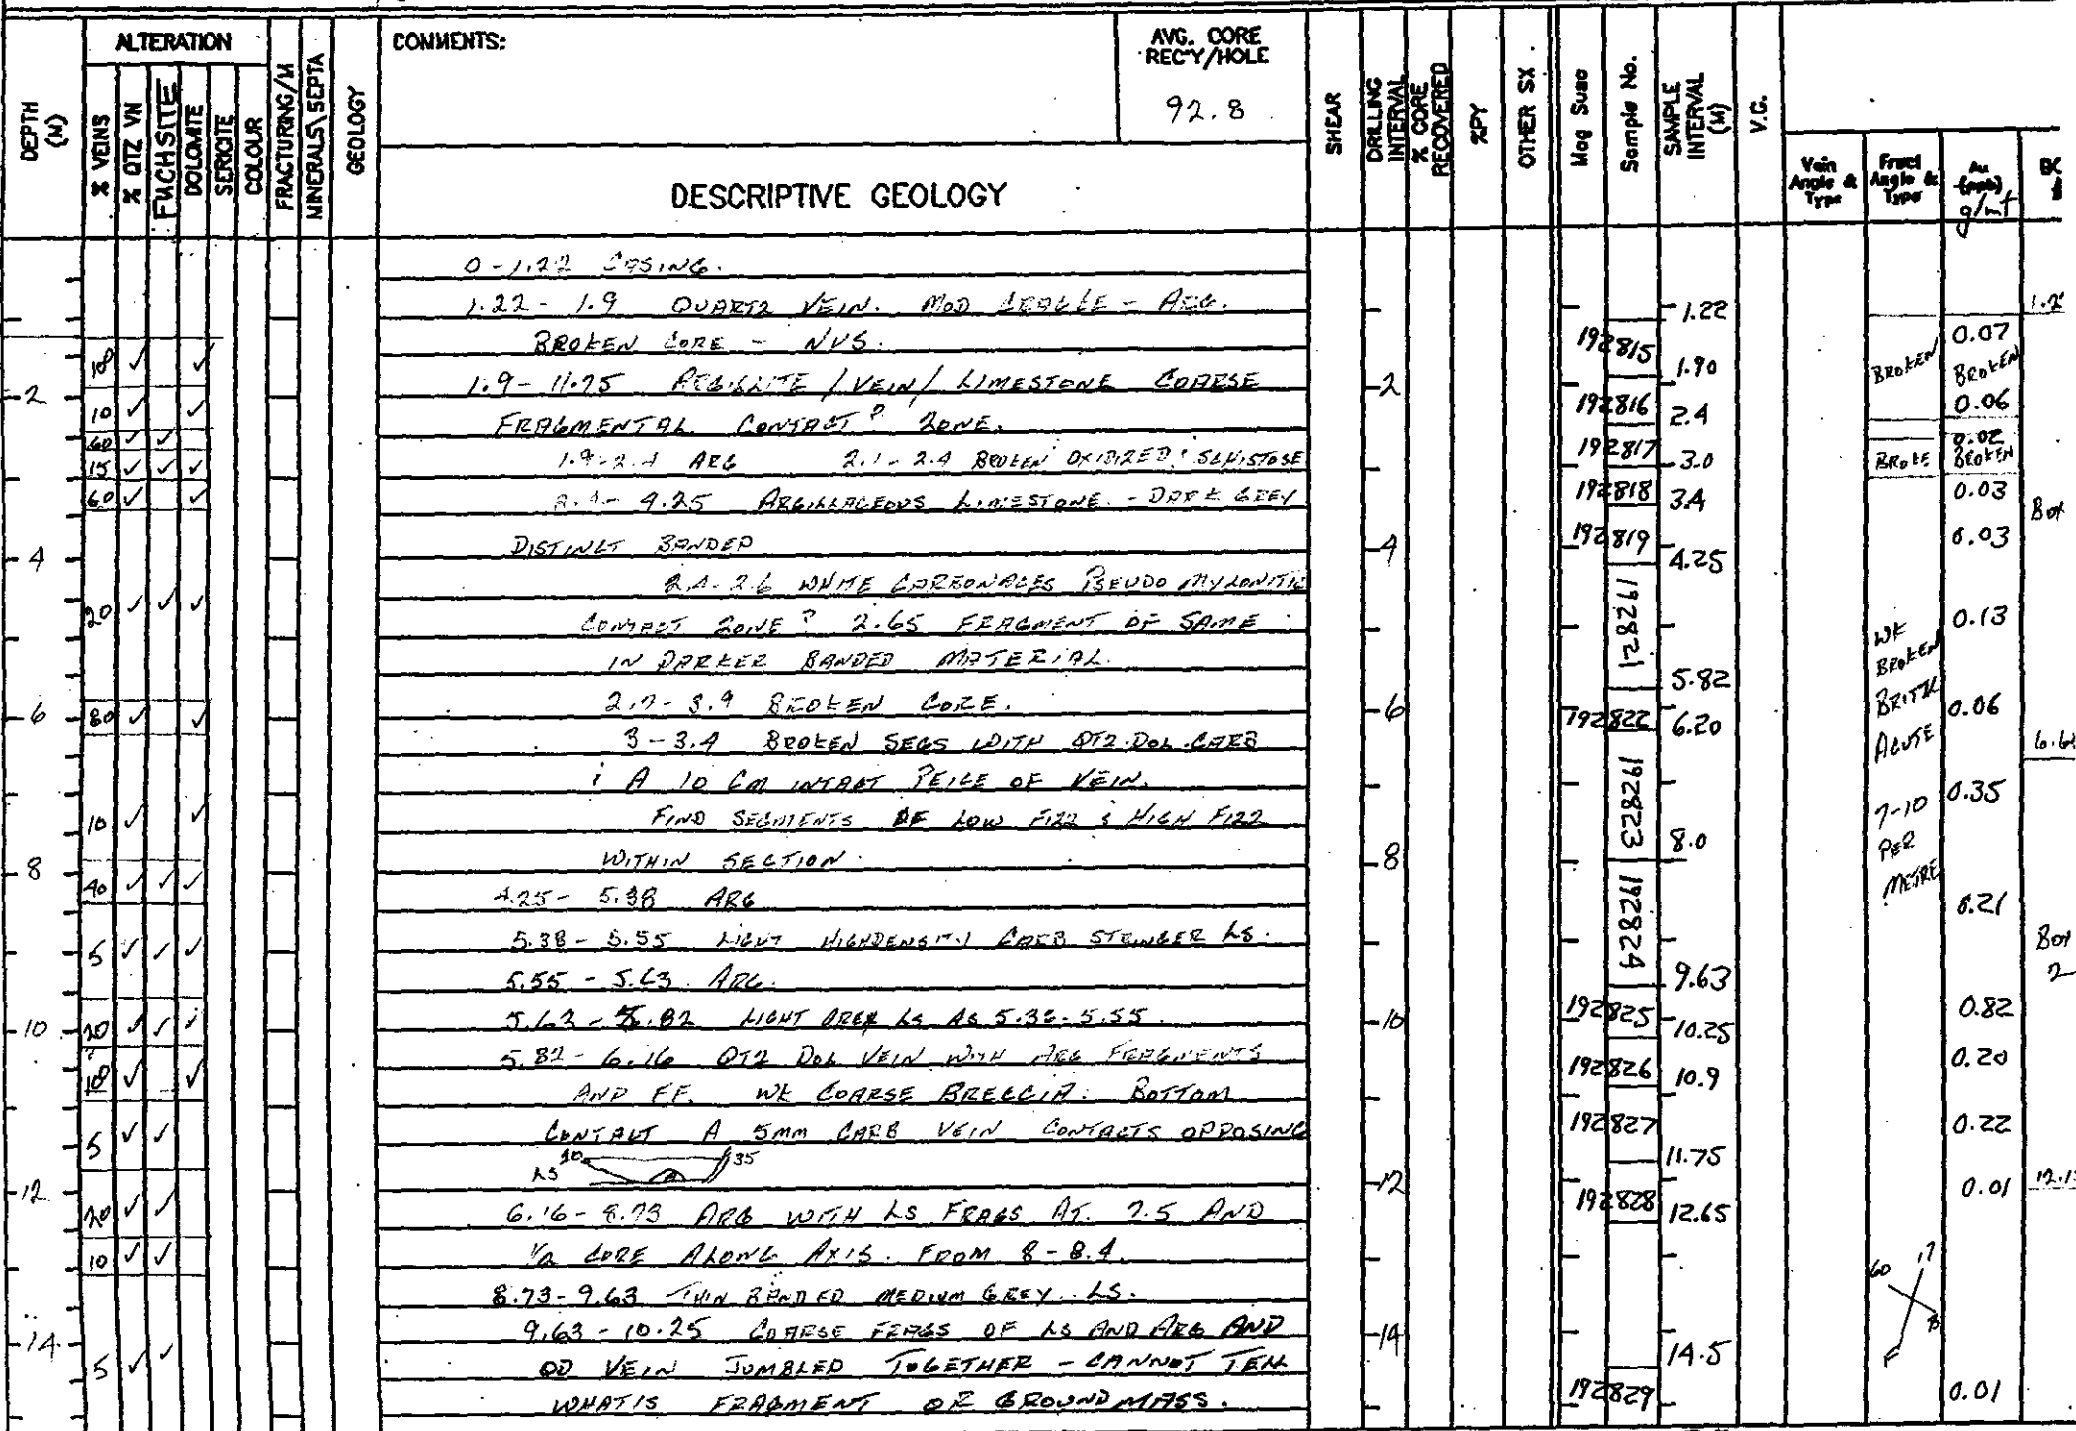 ALTERATION
COMMENTS:
AVG. CORE
REC'Y/HOLE
92.8
DEPTH
(M)
% VEINS
% QTZ VN
FUCHSITE
DOLOMITE
SERICITE
COLOUR
FRACTURING/M
MINERALS\SEPTA
GEOLOGY
DESCRIPTIVE GEOLOGY
SHEAR
DRILLING
INTERVAL
% CORE
RECOVERED
%PY
OTHER SX
Mag Susc
Sample No.
SAMPLE
INTERVAL
(M)
V.G.
Vein
Angle &
Type
Fract
Angle &
Type
Au
(ppb)
g/mt
0-1.22 CASING.
1.22 - 1.9 QUARTZ VEIN. MOD CRACKLE - ARG.
BROKEN CORE - NVS.
1.9- 11.75 ARGILLITE / VEIN / LIMESTONE COARSE
FRAGMENTAL CONTACT? ZONE.
1.9-2.4 ARG 2.1-2.4 BROKEN OXIDIZED; SCHISTOSE
2.4- 4.25 ARGILLACEOUS LIMESTONE. - DARK GREY
DISTINCT BANDED
2.4-2.6 WHITE PSEUDO MYLONITIC
CONTACT ZONE? 2.65 FRAGMENT OF SAME
IN DARKER BANDED MATERIAL.
BROKEN CORE.
3-3.4 BROKEN SEGS WITH QTZ.DOL.CARB
A 10 CM INTACT PEICE OF VEIN.
FIND SEGMENTS OF LOW FIZZ & HIGH FIZZ
WITHIN SECTION.
4.25- 5.38 ARG
5.38- 5.55 LIGHT HIGHDENSITY CARB STRINGER LS.
5.55 - 5.63. ARG.
5.63 - 5.82 LIGHT GREY LS AS 5.38-5.55.
5.82- 6.16 QTZ DOL VEIN WITH ARG FRAGMENTS
AND FF. WK COARSE BRECCIA. BOTTOM
CONTACT A 5MM CARB VEIN CONTACTS OPPOSING
LS 35
6.16-8.73 ARG WITH LS FRAGS AT. 7.5 AND
1/2 CORE ALONG AXIS. FROM 8-8.4.
8.73-9.63 THIN BANDED MEDIUM GREY. LS.
9.63-10.25 COARSE FRAGS OF LS AND ARG AND
QD VEIN JUMBLED TOGETHER - CANNOT TELL
WHAT IS FRAGMENT OR GROUNDMASS.
2
4
6
8
10
12
14
10 ✓ ✓
60 ✓ ✓
15 ✓ ✓ ✓
60 ✓ ✓
20 ✓ ✓ ✓
80 ✓ ✓
10 ✓ ✓
40 ✓ ✓ ✓
5 ✓ ✓ ✓
20 ✓ ✓ ✓
5 ✓ ✓
20 ✓ ✓
10 ✓ ✓
5 ✓ ✓
2
4
6
8
10
12
14
192815
192816
192817
192818
192819
192821
192822
192823
192824
192825
192826
192827
192828
192829
1.22
1.90
2.4
3.0
3.4
4.25
5.82
6.20
8.0
9.63
10.25
10.9
11.75
12.65
14.5
BROKEN
BROKE
WK
BROKEN
BRITTL
ACUTE
7-10
PER
METRE
60 17
F
0.07
BROKEN
0.06
0.02
BROKEN
0.03
0.03
0.13
0.06
0.35
0.21
0.82
0.20
0.22
0.01
0.01
Box
Box
2